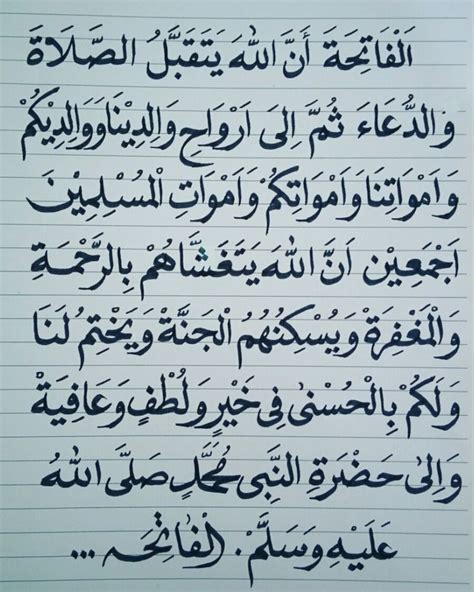 اَلْفَاتِحَةَ أَنَّ اللهَ يَتَقَبَّلُ الصَّلَاةَ
وَالدُّعَاءَ ثُمَّ اِلَى اَرْوَاحِ وَالِدِيْنَا وَوَالِدِيْكُمْ
وَاَمْوَاتِنَا وَاَمْوَاتِكُمْ وَاَمْوَاتِ الْمُسْلِمِيْنَ
اَجْمَعِيْن اَنَّ اللهَ يَتَغَشَّاهُمْ بِالرَّحْمَةِ
وَالْمَغْفِرَةْ وَيُسْكِنُهُمُ الْجَنَّةْ وَيَخْتِمُ لَنَا
وَلَكُمْ بِالْحُسْنٰى فِيْ خَيْرٍ وَلُطْفٍ وَعَافِيَةْ
وَاِلٰى حَضْرَةِ النَّبِى مُحَمَّدٍ صَلَّى اللهُ
عَلَيْهِ وَسَلَّمْ. الْفَاتِحَه ...